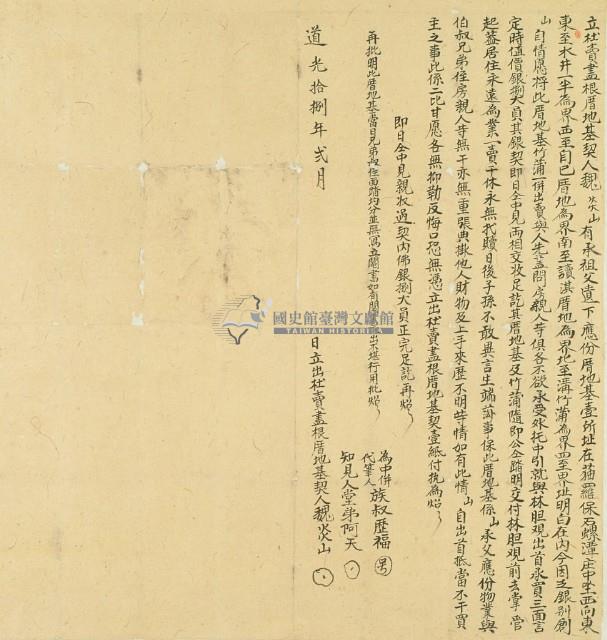 立杜賣盡根厝地基契人魏炎山有承祖父遺下應份厝地基壹所址在猫羅保石螺潭庄中坐西向東
東至水井一半為界西至自己厝地為界南至讀淇厝地為界北至溝竹蒲為界四至界址明白在內今因乏銀別創
山自情愿將此厝地基竹蒲一併出賣與人先盡問房親人等俱各不欲承受外托中引就與林胆观出首承買三面言
定時值價銀捌大員其銀契即日仝中見兩相交收足訖其厝地基及竹蒲隨即公仝踏明交付林胆观前去掌管
起蓋居住永遠為業一賣千休永無找贖日後子孫不敢異言生端滋事保此厝地基係山承父應份物業與
伯叔兄弟侄房親人等無干亦無重張典掛他人財物及上手來歷不明等情如有此情山自出首抵當不干買
主之事此係二比甘愿各無抑勒反悔口恐無憑立出杜賣盡根厝地基契壹紙付执為炤
即日仝中見親收過契內佛銀捌大員正完足訖再炤
再批明此厝地基當日兄弟叔侄面踏均分並無寫立鬮書如有鬮出不堪行用批炤
為中併代筆人族叔歷福
知見人堂弟阿天
道光拾捌年弍月 日立出杜賣盡根厝地基契人魏炎山
國史館臺灣文獻館
TAIWAN HISTORICA